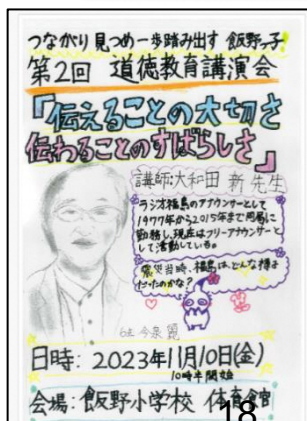 つながり見つめ一歩踏み出す 飯野っ子
第2回 道徳教育講演会
「伝えることの大切さ
伝わることのすばらしさ」
講師:大和田 新 先生
ラジオ福島のアナウンサーとして
1977年から2015年まで同局に
勤務し、現在はフリーアナウンサーと
して活動している。
震災当時、福島は、どんな様子
だったのかな?
6年 今泉
日時:2023年11月10日(金)
10時半開始
会場:飯野小学校 体育館
18